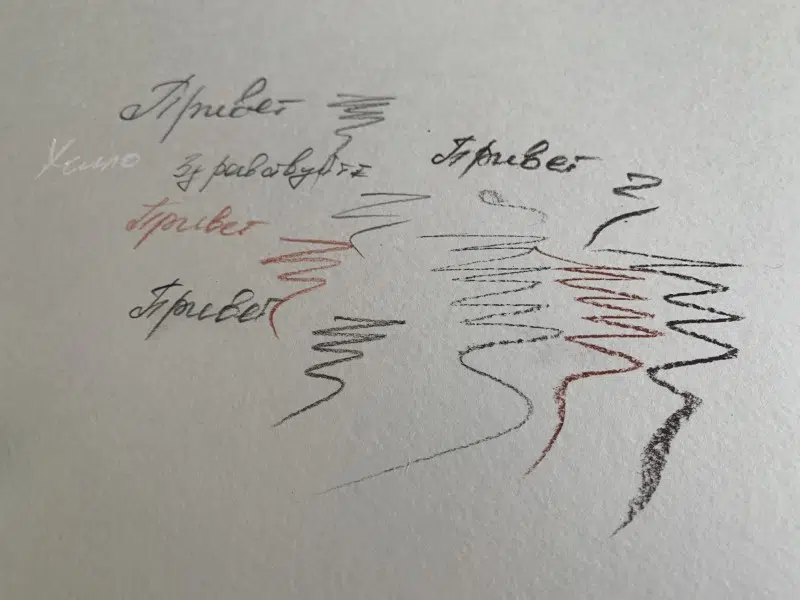 Привет
Здравствуйте
Привет
Привет
Привет